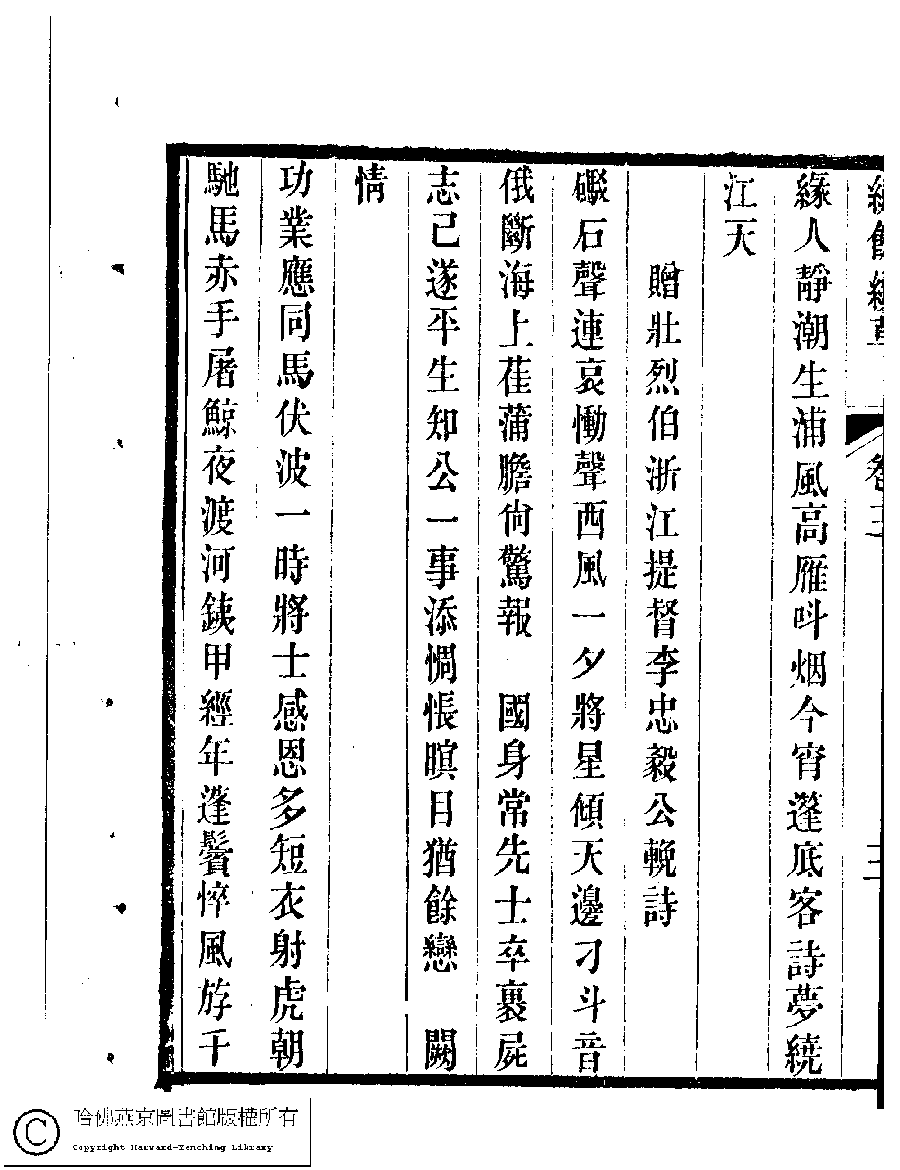 卷三
三
緣人靜潮生浦風高雁呌烟今宵蓬底客詩夢繞
江天
贈壯烈伯浙江提督李忠毅公輓詩
礮石聲連哀慟聲西風一夕將星傾天邊刁斗音
俄斷海上萑蒲膽尙驚報 國身常先士卒裹屍
志已遂平生知公一事添惆悵瞑目猶餘戀 闕
情
功業應同馬伏波一時將士感恩多短衣射虎朝
馳馬赤手屠鯨夜渡河銕甲經年蓬鬢悴風斿千
哈佛燕京圖書館版權所有
Copyright Harvard-Yenching Library